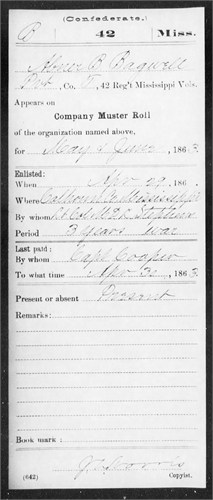 (Confederate.)
B 42 Miss.
Abner B. Bagwell
Pvt, Co. F, 42 Reg't Mississippi Vols.
Appears on
Company Muster Roll
of the organization named above,
for May & June, 1863.
Enlisted:
When Apr 29, 186 .
Where Calhoun Co Mississippi
By whom Lt Col
Period 3 years war
Last paid:
By whom Capt Cooper
To what time Apr 30, 1863.
Present or absent Present
Remarks:
Book mark:
(642) Copyist.